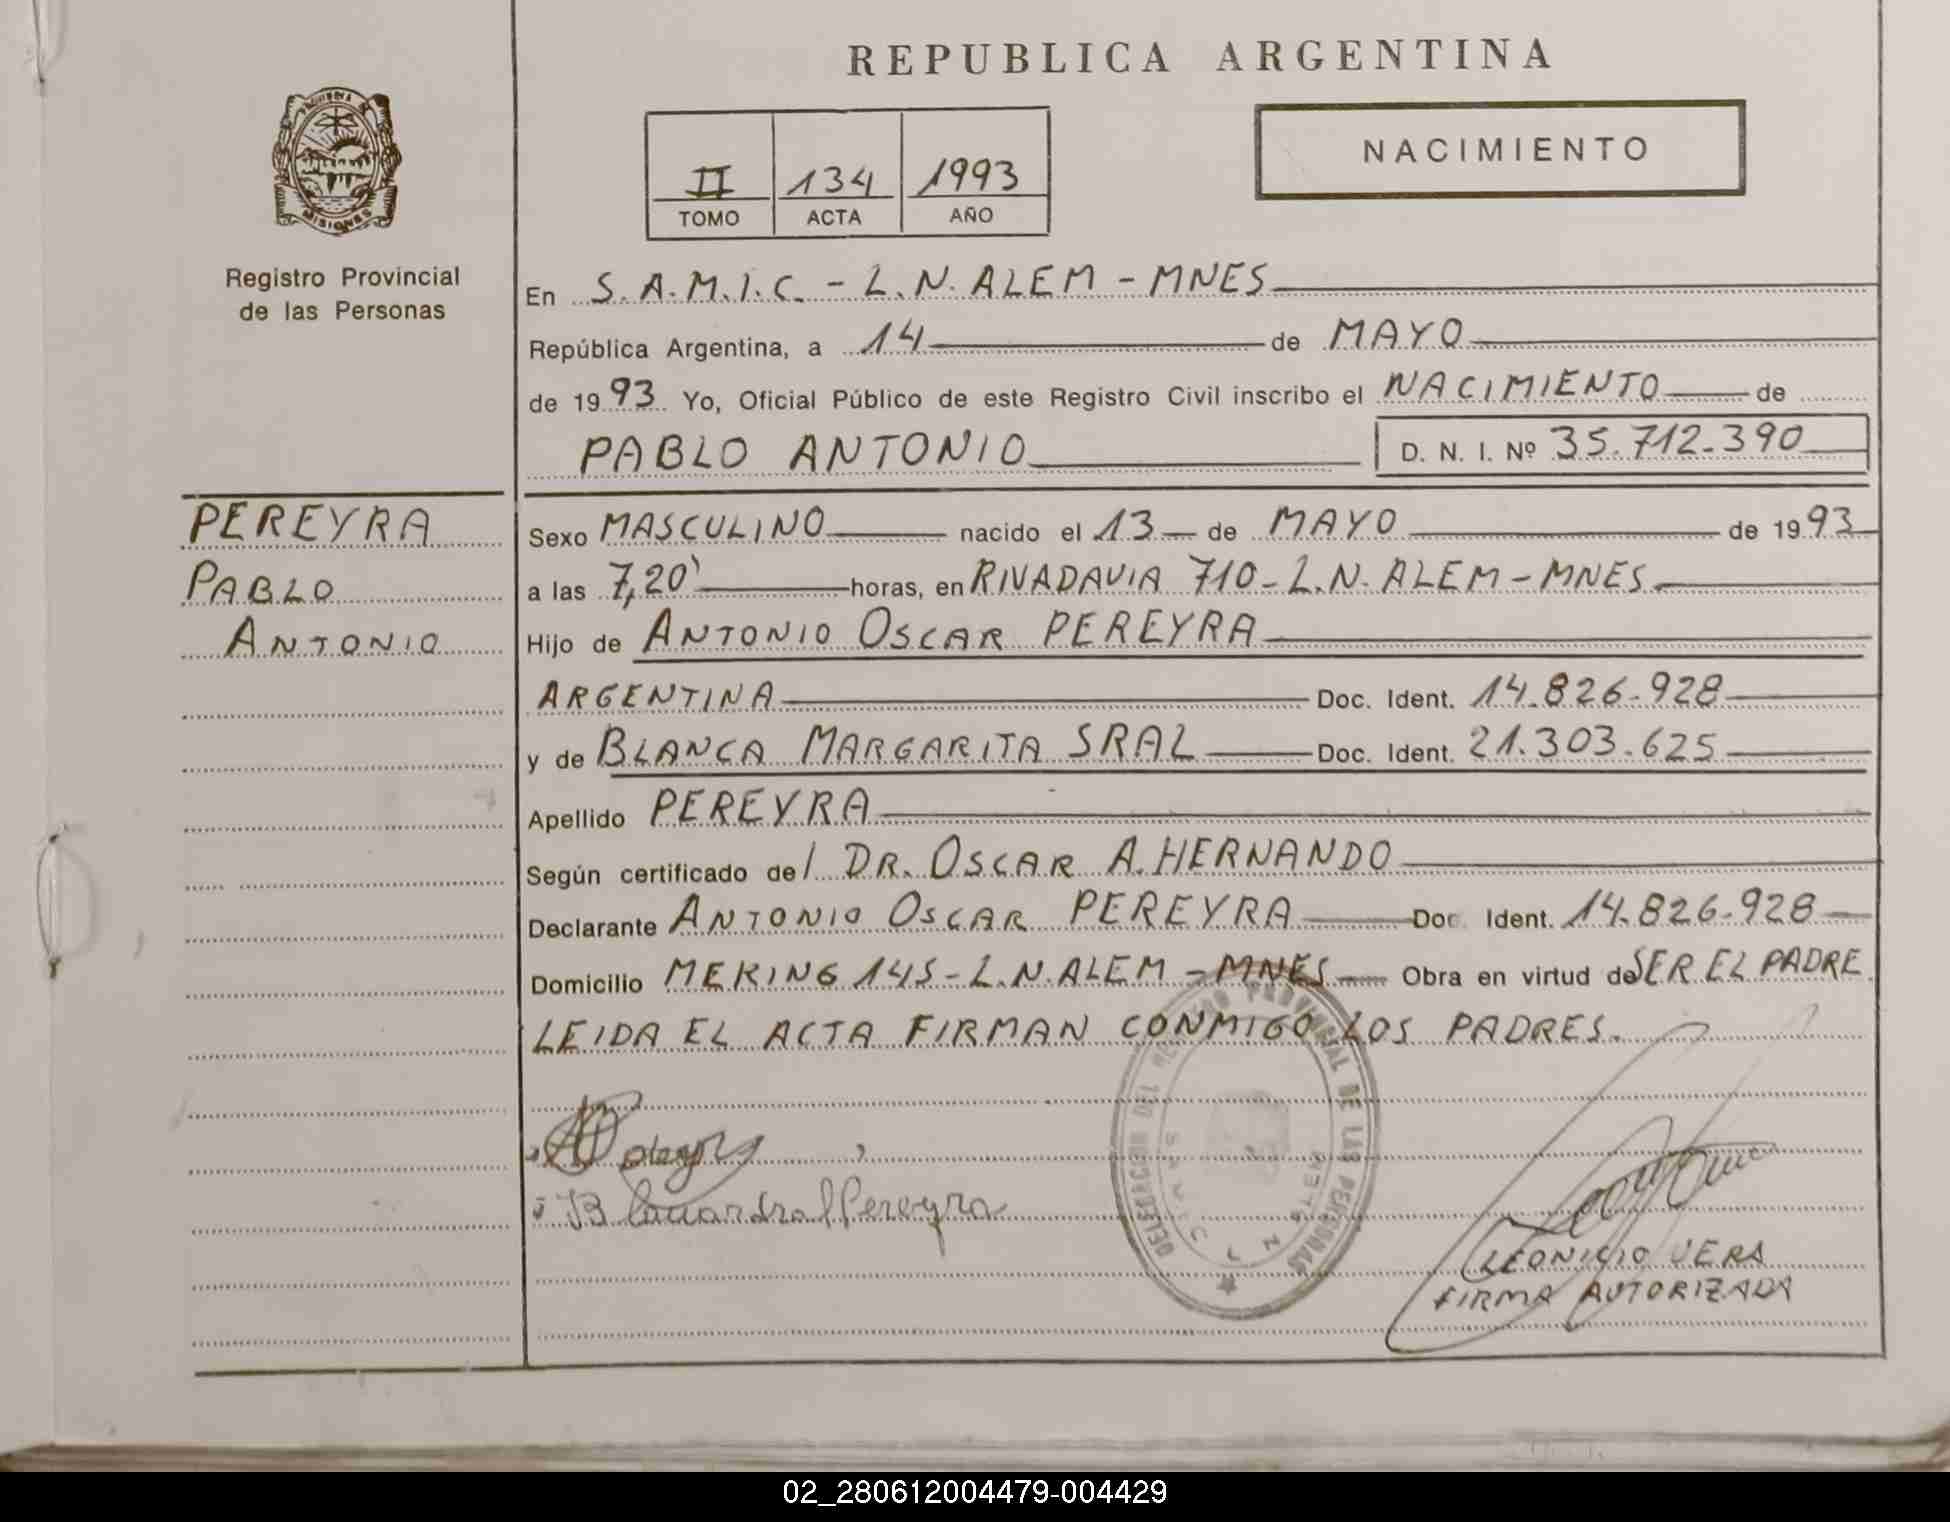 REPUBLICA ARGENTINA
MISIONES
Registro Provincial
de las Personas
II 134 1993
TOMO ACTA AÑO
NACIMIENTO
En S.A.M.I.C. - L.N. ALEM - MNES
República Argentina, a 14 de MAYO
de 1993 Yo, Oficial Público de este Registro Civil inscribo el NACIMIENTO de
PABLO ANTONIO D. N. I. Nº 35.712.390
PEREYRA
PABLO
ANTONIO
Sexo MASCULINO nacido el 13 de MAYO de 1993
a las 7,20' horas, en RIVADAVIA 710 - L.N. ALEM - MNES
Hijo de ANTONIO OSCAR PEREYRA
ARGENTINA Doc. Ident. 14.826.928
y de BLANCA MARGARITA SRAL Doc. Ident. 21.303.625
Apellido PEREYRA
Según certificado del DR. OSCAR A. HERNANDO
Declarante ANTONIO OSCAR PEREYRA Doc. Ident. 14.826.928
Domicilio MEKING 145 - L.N. ALEM - MNES Obra en virtud de SER EL PADRE
LEIDA EL ACTA FIRMAN CONMIGO LOS PADRES.
DELEGACION DEL REGISTRO PROVINCIAL DE LAS PERSONAS
Pereyra
LEONICIO VERA
FIRMA AUTORIZADA
02_280612004479-004429